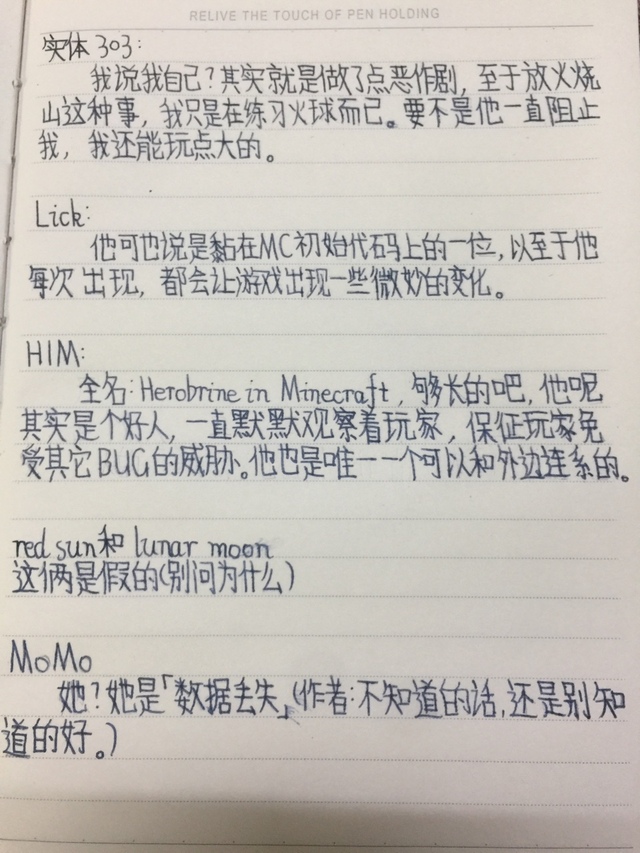 RELIVE THE TOUCH OF PEN HOLDING
实体303:
我说我自己?其实就是做了点恶作剧,至于放火烧
山这种事,我只是在练习火球而已。要不是他一直阻止
我,我还能玩点大的。
Lick:
他可也说是黏在MC初始代码上的一位,以至于他
每次出现,都会让游戏出现一些微妙的变化。
HIM:
全名:Herobrine in Minecraft,够长的吧,他呢
其实是个好人,一直默默观察着玩家,保征玩家免
受其它BUG的威胁。他也是唯一一个可以和外边连系的。
red sun和lunar moon
这俩是假的(别问为什么)
MoMo
她?她是「数据丢失」(作者:不知道的话,还是别知
道的好。)